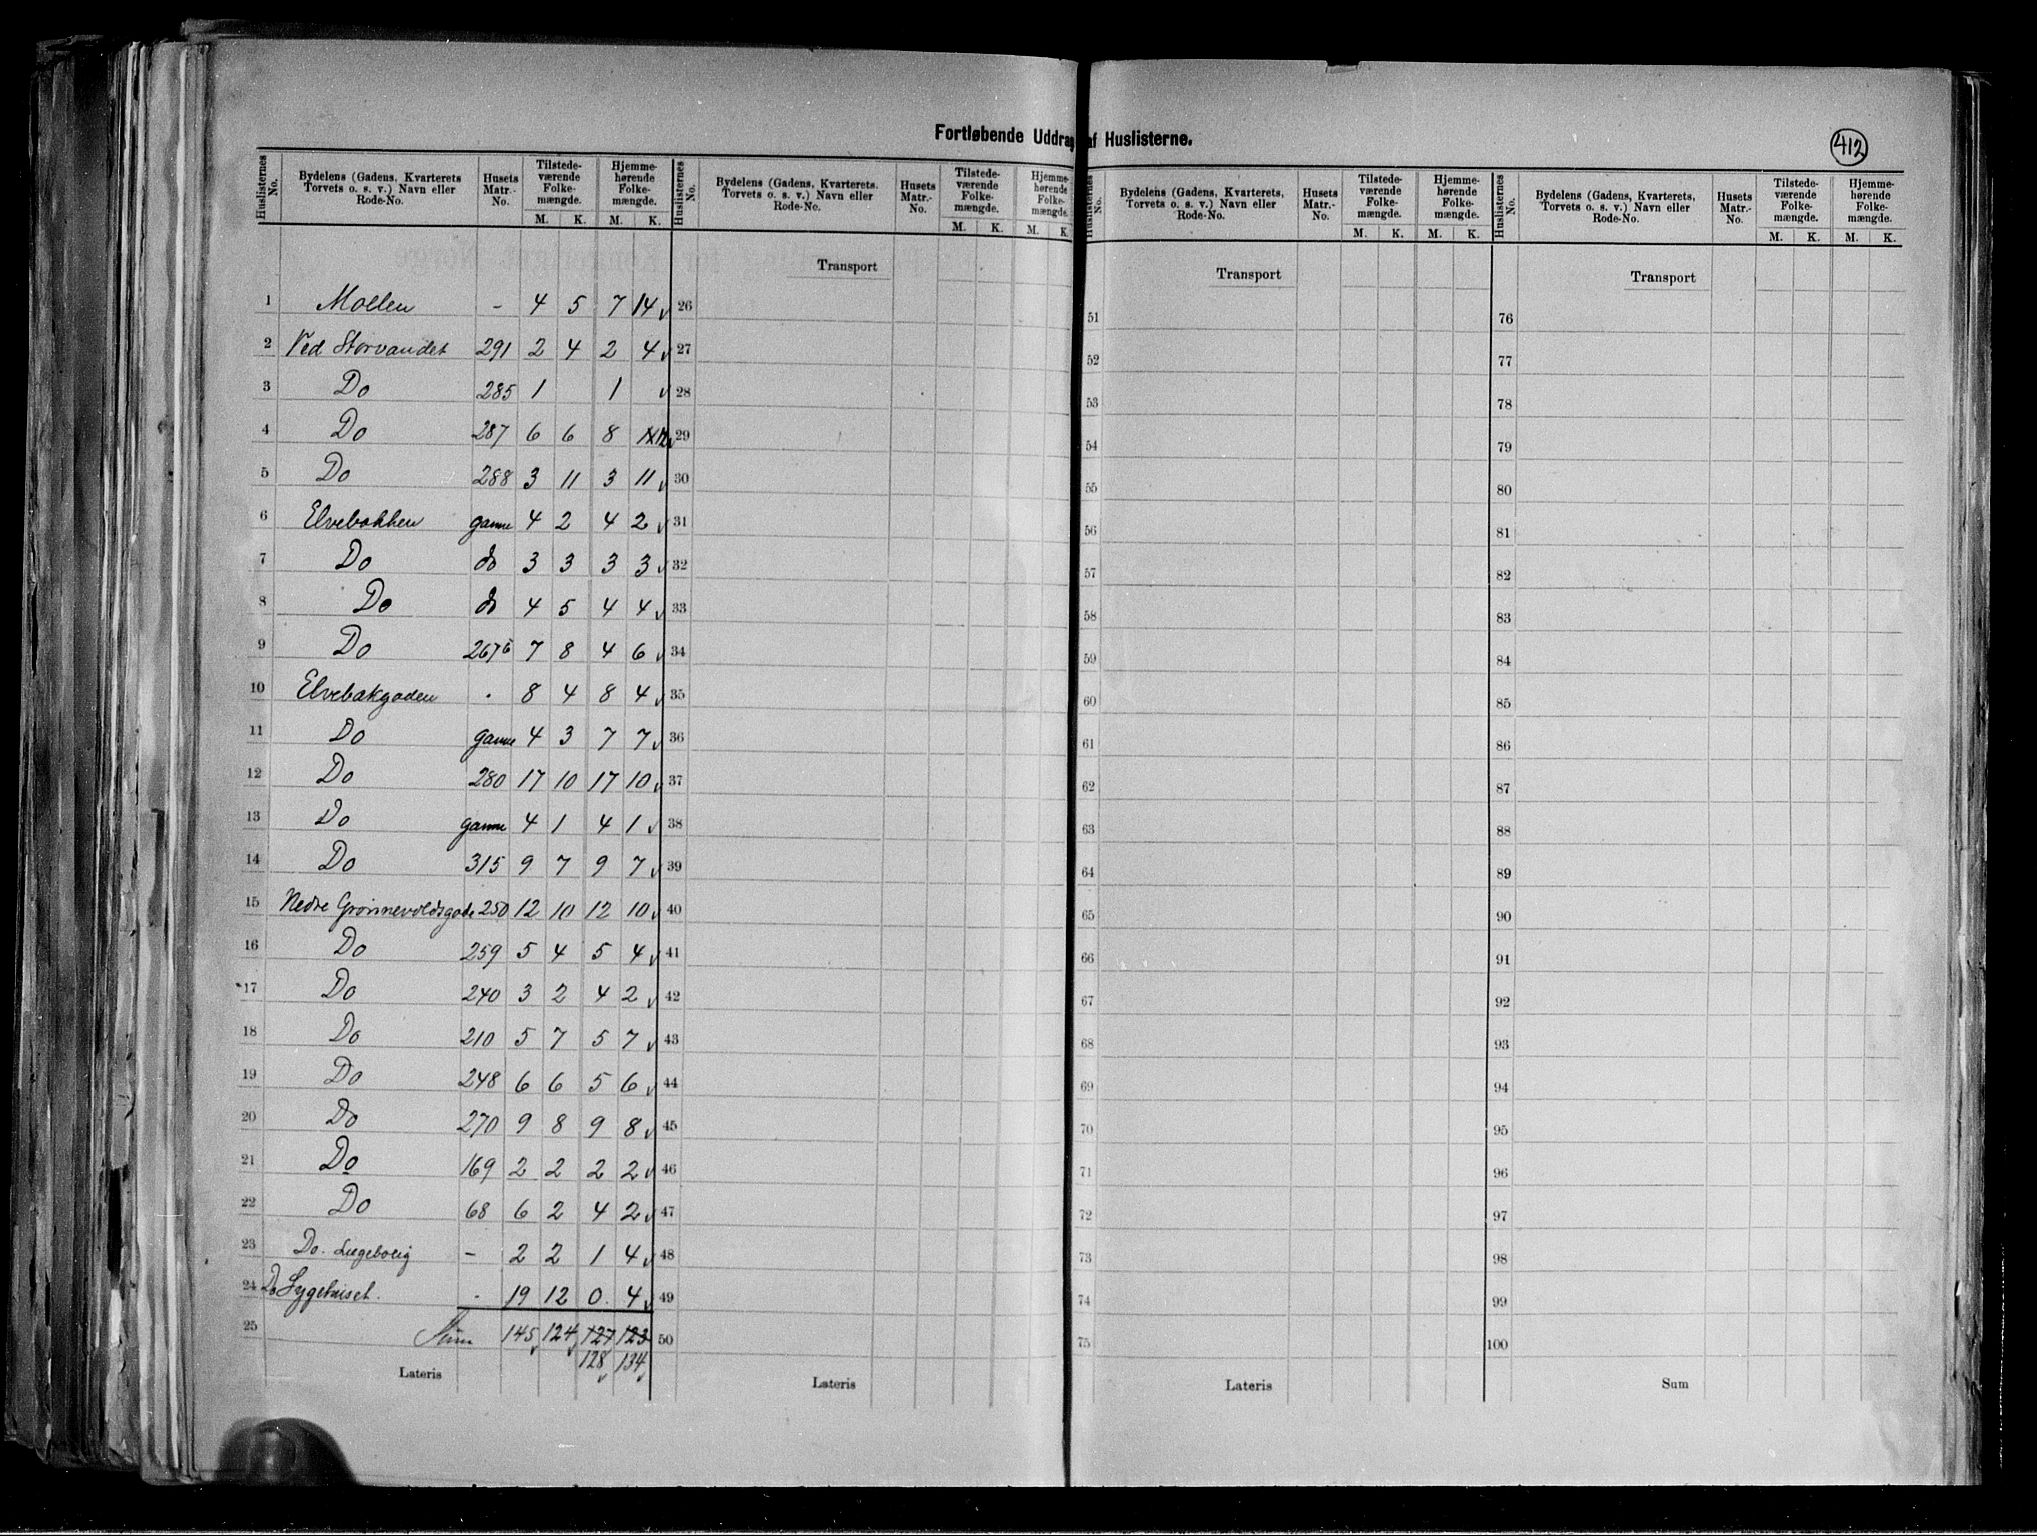 Fortløbende Uddrag af Huslisterne.
412
Huslisternes No. | Bydelens (Gadens, Kvarterets Torvets o. s. v.) Navn eller Rode-No. | Husets Matr.-No. | Tilstede-værende Folke-mængde. M. K. | Hjemme-hørende Folke-mængde. M. K.
Huslisternes No. | Bydelens (Gadens, Kvarterets, Torvets o. s. v.) Navn eller Rode-No. | Husets Matr.-No. | Tilstede-værende Folke-mængde. M. K. | Hjemme-hørende Folke-mængde. M. K.
Huslisternes No. | Bydelens (Gadens, Kvarterets, Torvets o. s. v.) Navn eller Rode-No. | Husets Matr.-No. | Tilstede-værende Folke-mængde. M. K. | Hjemme-hørende Folke-mængde. M. K.
Huslisternes No. | Bydelens (Gadens, Kvarterets, Torvets o. s. v.) Navn eller Rode-No. | Husets Matr.-No. | Tilstede-værende Folke-mængde. M. K. | Hjemme-hørende Folke-mængde. M. K.
Transport Transport Transport
1 Mollen - 4 5 7 14 26 51 76
2 Ved Storvandet 291 2 4 2 4 27 52 77
3 Do 285 1 1 28 53 78
4 Do 287 6 6 8 12 29 54 79
5 Do 288 3 11 3 11 30 55 80
6 Elvebakken gamme 4 2 4 2 31 56 81
7 Do do 3 3 3 3 32 57 82
8 Do do 4 5 4 4 33 58 83
9 Do 267b 7 8 4 6 34 59 84
10 Elvebakgaden - 8 4 8 4 35 60 85
11 Do gamme 4 3 7 7 36 61 86
12 Do 280 17 10 17 10 37 62 87
13 Do gamme 4 1 4 1 38 63 88
14 Do 315 9 7 9 7 39 64 89
15 Nedre Grønnevoldsgade 250 12 10 12 10 40 65 90
16 Do 259 5 4 5 4 41 66 91
17 Do 240 3 2 4 2 42 67 92
18 Do 210 5 7 5 7 43 68 93
19 Do 248 6 6 5 6 44 69 94
20 Do 270 9 8 9 8 45 70 95
21 Do 169 2 2 2 2 46 71 96
22 Do 68 6 2 4 2 47 72 97
23 Do. Lægebolig - 2 2 1 4 48 73 98
24 Do Sygehuset. - 19 12 0. 4 49 74 99
25 Sum 145 124 127 123 50 75 100
128 134
Lateris Lateris Lateris Sum